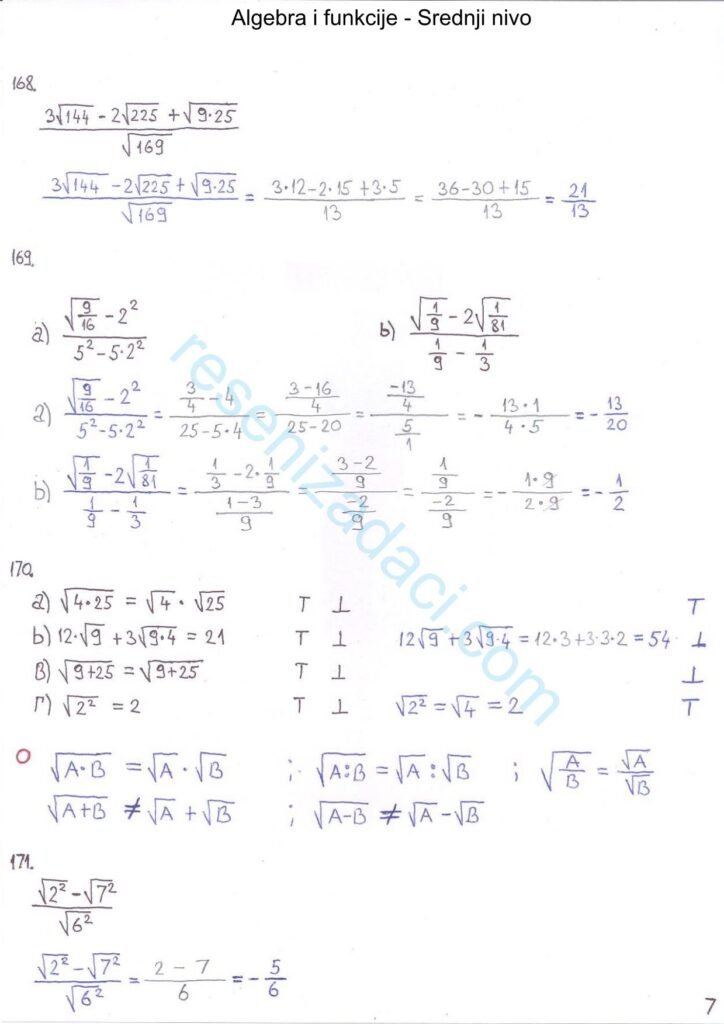 Algebra i funkcije - Srednji nivo
168.
(3√144 - 2√225 + √(9·25)) / √169
(3√144 - 2√225 + √(9·25)) / √169 = (3·12-2·15+3·5) / 13 = (36-30+15) / 13 = 21/13
169.
а) (√(9/16) - 2²) / (5² - 5·2²) b) (√(1/9) - 2√(1/81)) / (1/9 - 1/3)
а) (√(9/16) - 2²) / (5² - 5·2²) = (3/4 - 4) / (25-5·4) = ((3-16)/4) / (25-20) = (-13/4) / (5/1) = - (13·1)/(4·5) = - 13/20
b) (√(1/9) - 2√(1/81)) / (1/9 - 1/3) = (1/3 - 2·1/9) / ((1-3)/9) = ((3-2)/9) / (-2/9) = (1/9) / (-2/9) = - (1·9)/(2·9) = - 1/2
170.
а) √(4·25) = √4 · √25 T ⊥ T
b) 12·√9 + 3√(9·4) = 21 T ⊥ 12√9 + 3√(9·4) = 12·3+3·3·2 = 54 ⊥
в) √(9+25) = √(9+25) T ⊥ ⊥
г) √2² = 2 T ⊥ √2² = √4 = 2 T
√(A·B) = √A · √B ; √(A:B) = √A : √B ; √(A/B) = √A/√B
√(A+B) ≠ √A + √B ; √(A-B) ≠ √A - √B
171.
(√2² - √7²) / √6²
(√2² - √7²) / √6² = (2 - 7) / 6 = - 5/6
7
resenizadaci.com